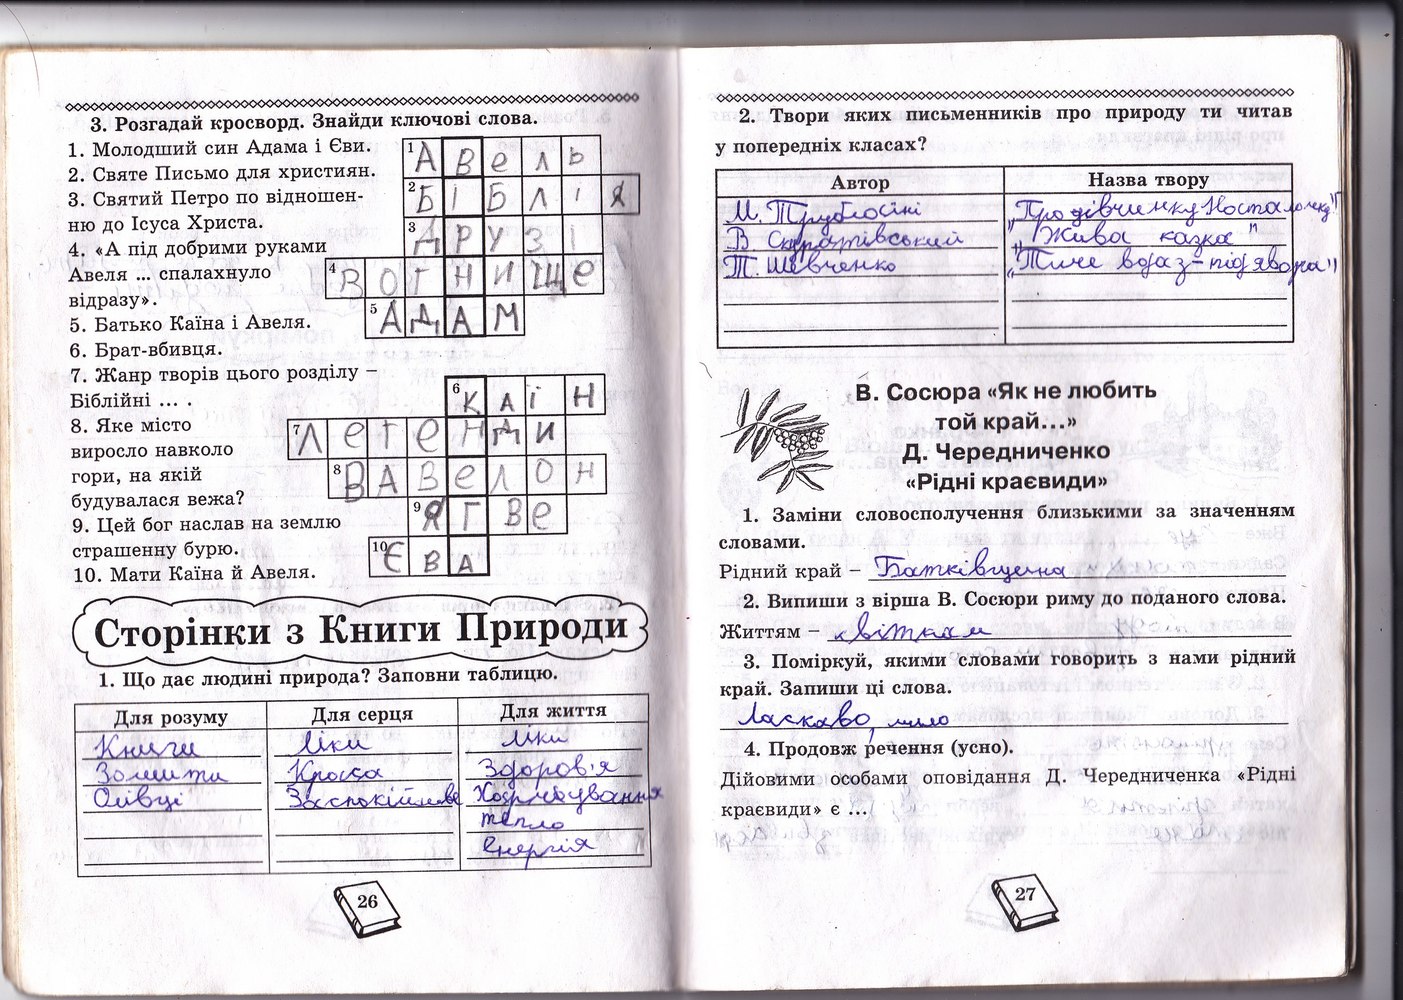 3. Розгадай кросворд. Знайди ключові слова.
1. Молодший син Адама і Єви.
2. Святе Письмо для християн.
3. Святий Петро по відношен-
ню до Ісуса Христа.
4. «А під добрими руками
Авеля ... спалахнуло
відразу».
5. Батько Каїна і Авеля.
6. Брат-вбивця.
7. Жанр творів цього розділу –
Біблійні ... .
8. Яке місто
виросло навколо
гори, на якій
будувалася вежа?
9. Цей бог наслав на землю
страшенну бурю.
10. Мати Каїна й Авеля.
1 Авель
2 БІБЛІЯ
3 ДРУЗІ
4 ВОГНИЩе
5 АДАМ
6 КАЇН
7 ЛеГеНДИ
8 ВАВеЛОН
9 ЯГВе
10 ЄВА
Сторінки з Книги Природи
1. Що дає людині природа? Заповни таблицю.
Для розуму Для серця Для життя
Книги Ліки ліки
Зошити Краса Здоров'я
Олівці Заспокійливе Харчування
тепло
енергія
26
2. Твори яких письменників про природу ти читав
у попередніх класах?
Автор Назва твору
М. Трублаїні „Про дівчинку Наталочку"
В Скуратівський „Жива казка"
Т. Шевченко „Тиче вода з-під явора"
В. Сосюра «Як не любить
той край...»
Д. Чередниченко
«Рідні краєвиди»
1. Заміни словосполучення близькими за значенням
словами.
Рідний край – Батківщина
2. Випиши з вірша В. Сосюри риму до поданого слова.
Життям – квіткам
3. Поміркуй, якими словами говорить з нами рідний
край. Запиши ці слова.
Ласкаво, мило
4. Продовж речення (усно).
Дійовими особами оповідання Д. Чередниченка «Рідні
краєвиди» є ...
27